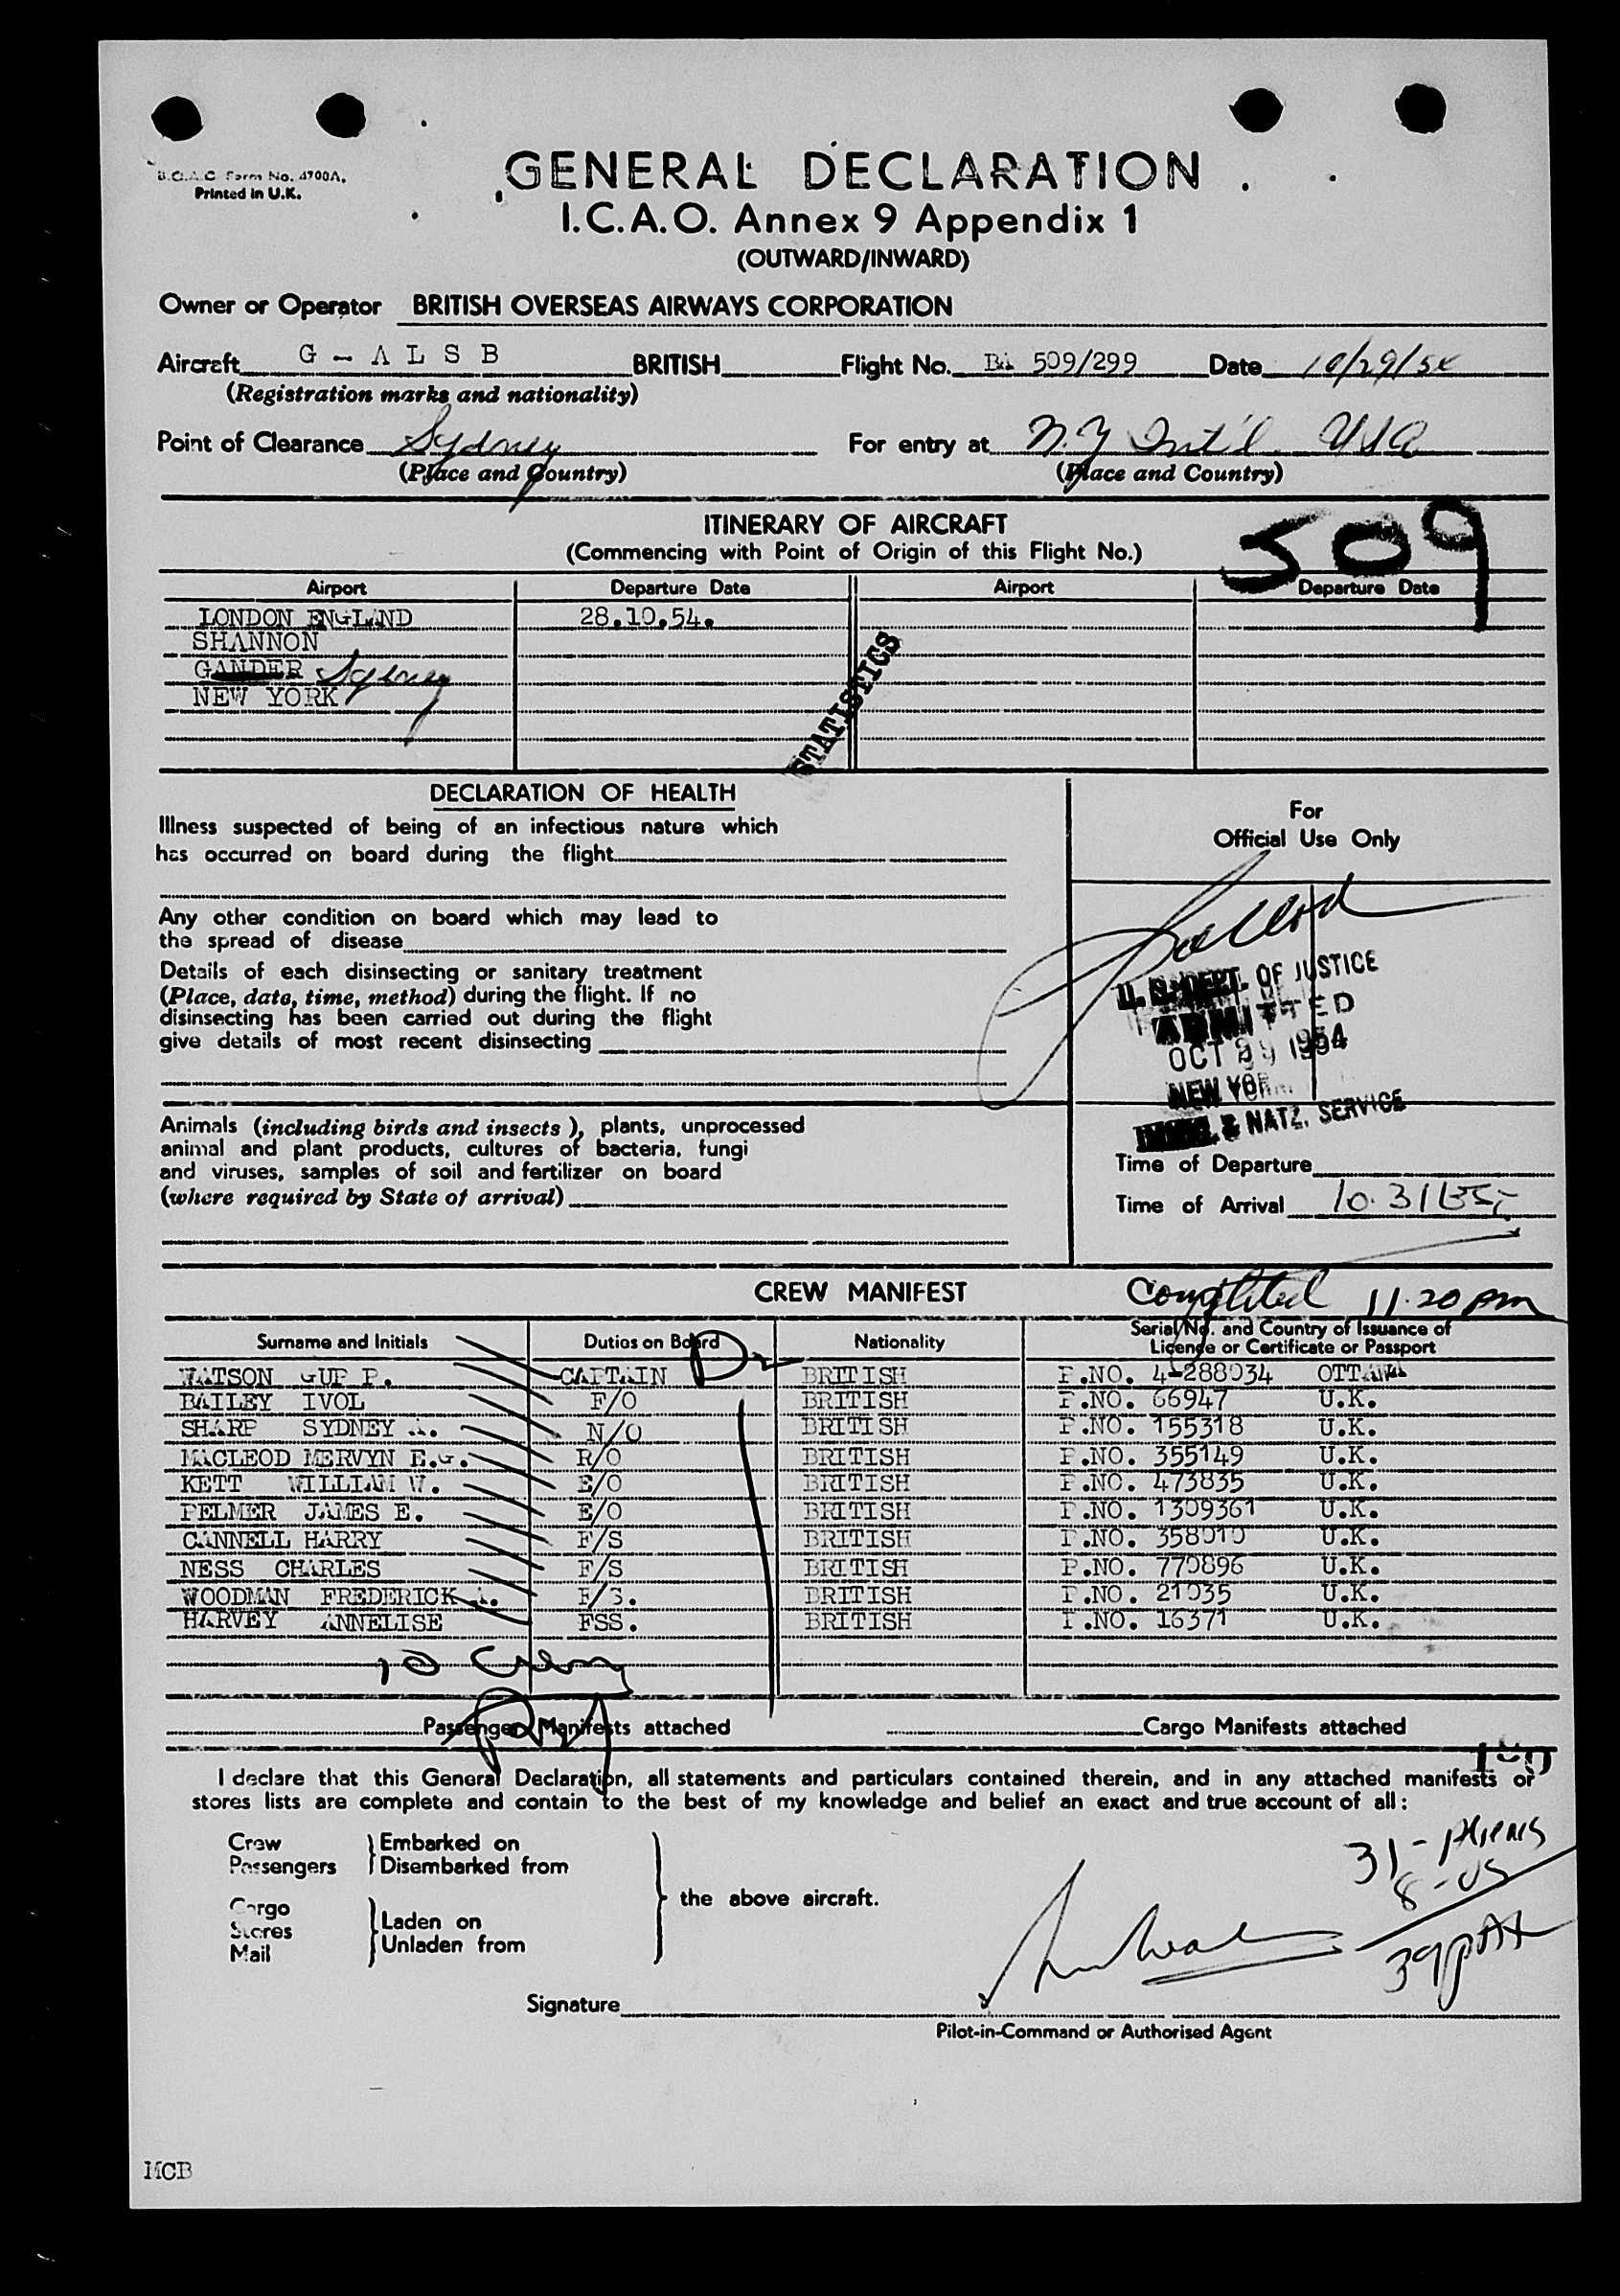 B.O.A.C. Form No. 4700A.
Printed in U.K.
GENERAL DECLARATION
I.C.A.O. Annex 9 Appendix 1
(OUTWARD/INWARD)
Owner or Operator BRITISH OVERSEAS AIRWAYS CORPORATION
Aircraft G - A L S B BRITISH Flight No. BA 509/299 Date 10/29/54
(Registration marks and nationality)
Point of Clearance Sydney For entry at N.Y Int'l. USA
(Place and Country) (Place and Country)
ITINERARY OF AIRCRAFT
(Commencing with Point of Origin of this Flight No.)
509
Airport Departure Date Airport Departure Date
LONDON ENGLAND 28.10.54.
SHANNON
GANDER Sydney
NEW YORK
STATISTICS
DECLARATION OF HEALTH
Illness suspected of being of an infectious nature which
has occurred on board during the flight
Any other condition on board which may lead to
the spread of disease
Details of each disinsecting or sanitary treatment
(Place, date, time, method) during the flight. If no
disinsecting has been carried out during the flight
give details of most recent disinsecting
Animals (including birds and insects), plants, unprocessed
animal and plant products, cultures of bacteria, fungi
and viruses, samples of soil and fertilizer on board
(where required by State of arrival)
For
Official Use Only
U. S. DEPT. OF JUSTICE
ADMITTED
OCT 29 1954
NEW YORK
IMMIG. & NATZ. SERVICE
Time of Departure
Time of Arrival 10.31
CREW MANIFEST
Completed 11.20 pm
Surname and Initials Duties on Board Nationality Serial No. and Country of Issuance of
Licence or Certificate or Passport
WATSON GUP P. CAPTAIN BRITISH P.NO. 4-288034 OTTAWA
BAILEY IVOL F/O BRITISH P.NO. 66947 U.K.
SHARP SYDNEY A. N/O BRITISH P.NO. 155318 U.K.
MACLEOD MERVYN E.G. R/O BRITISH P.NO. 355149 U.K.
KETT WILLIAM W. E/O BRITISH P.NO. 473835 U.K.
PELMER JAMES E. E/O BRITISH P.NO. 1309361 U.K.
CANNELL HARRY F/S BRITISH P.NO. 358010 U.K.
NESS CHARLES F/S BRITISH P.NO. 770896 U.K.
WOODMAN FREDERICK A. F/S. BRITISH P.NO. 21035 U.K.
HARVEY ANNELISE FSS. BRITISH P.NO. 16371 U.K.
10 Crew
Passenger Manifests attached Cargo Manifests attached
I declare that this General Declaration, all statements and particulars contained therein, and in any attached manifests or
stores lists are complete and contain to the best of my knowledge and belief an exact and true account of all:
Crew Embarked on
Passengers Disembarked from
the above aircraft.
Cargo Laden on
Stores Unladen from
Mail
31 - Aliens
8 - US
39
Signature
Pilot-in-Command or Authorised Agent
MCB